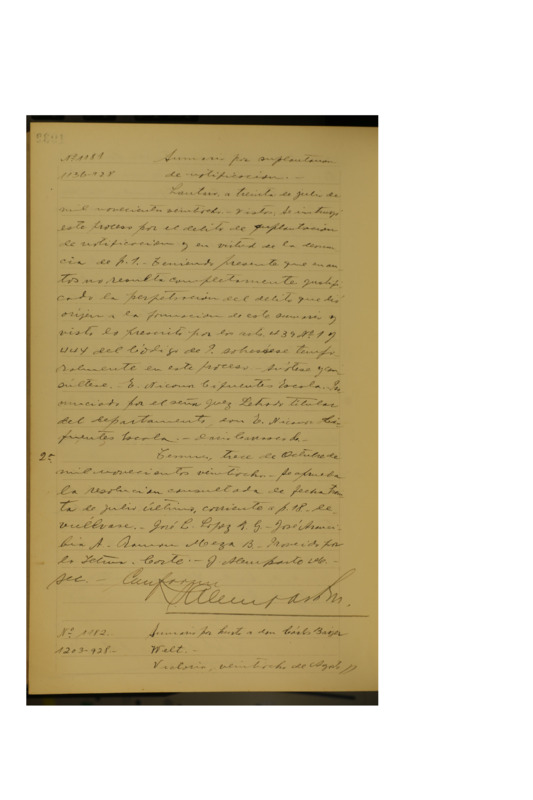 Nº 1181 Sumario por suplantacion
1136-928 de notificacion. -
Lautaro, a treinta de julio de
mil novecientos veintiocho. - Vistos: Se instruyó
este proceso por el delito de suplantacion
de notificacion y en virtud de la denun-
cia de f. 1. - Teniendo presente que de au-
tos no resulta completamente justifi-
cado la perpetracion del delito que dió
orígen a la formacion de este sumario y
visto lo prescrito por los arts. 434 Nº 1 y
444 del Código de P. sobreséese tempo-
ralmente en este proceso. - Anótese y con-
súltese. - E. Nicanor Cifuentes Escala. - Pro
nunciado por el señor Juez Letrado titular
del departamento, don E. Nicanor Ci-
fuentes Escala. -
2º Temuco, trece de Octubre de
mil novecientos veintiocho. - Se aprueba
la resolucion consultada de fecha trein-
ta de julio último, corriente a f. 18. De-
vuélvase. - José L. Lopez A. G - José Arrau-
bia A. Ramon Meza B - Proveido por
la Iltma. Corte -
sec. - Conforme
Nº 1182. Sumario por hurto a don Carlos
1203-928 - Welt. -
Victoria, veintiocho de Agosto